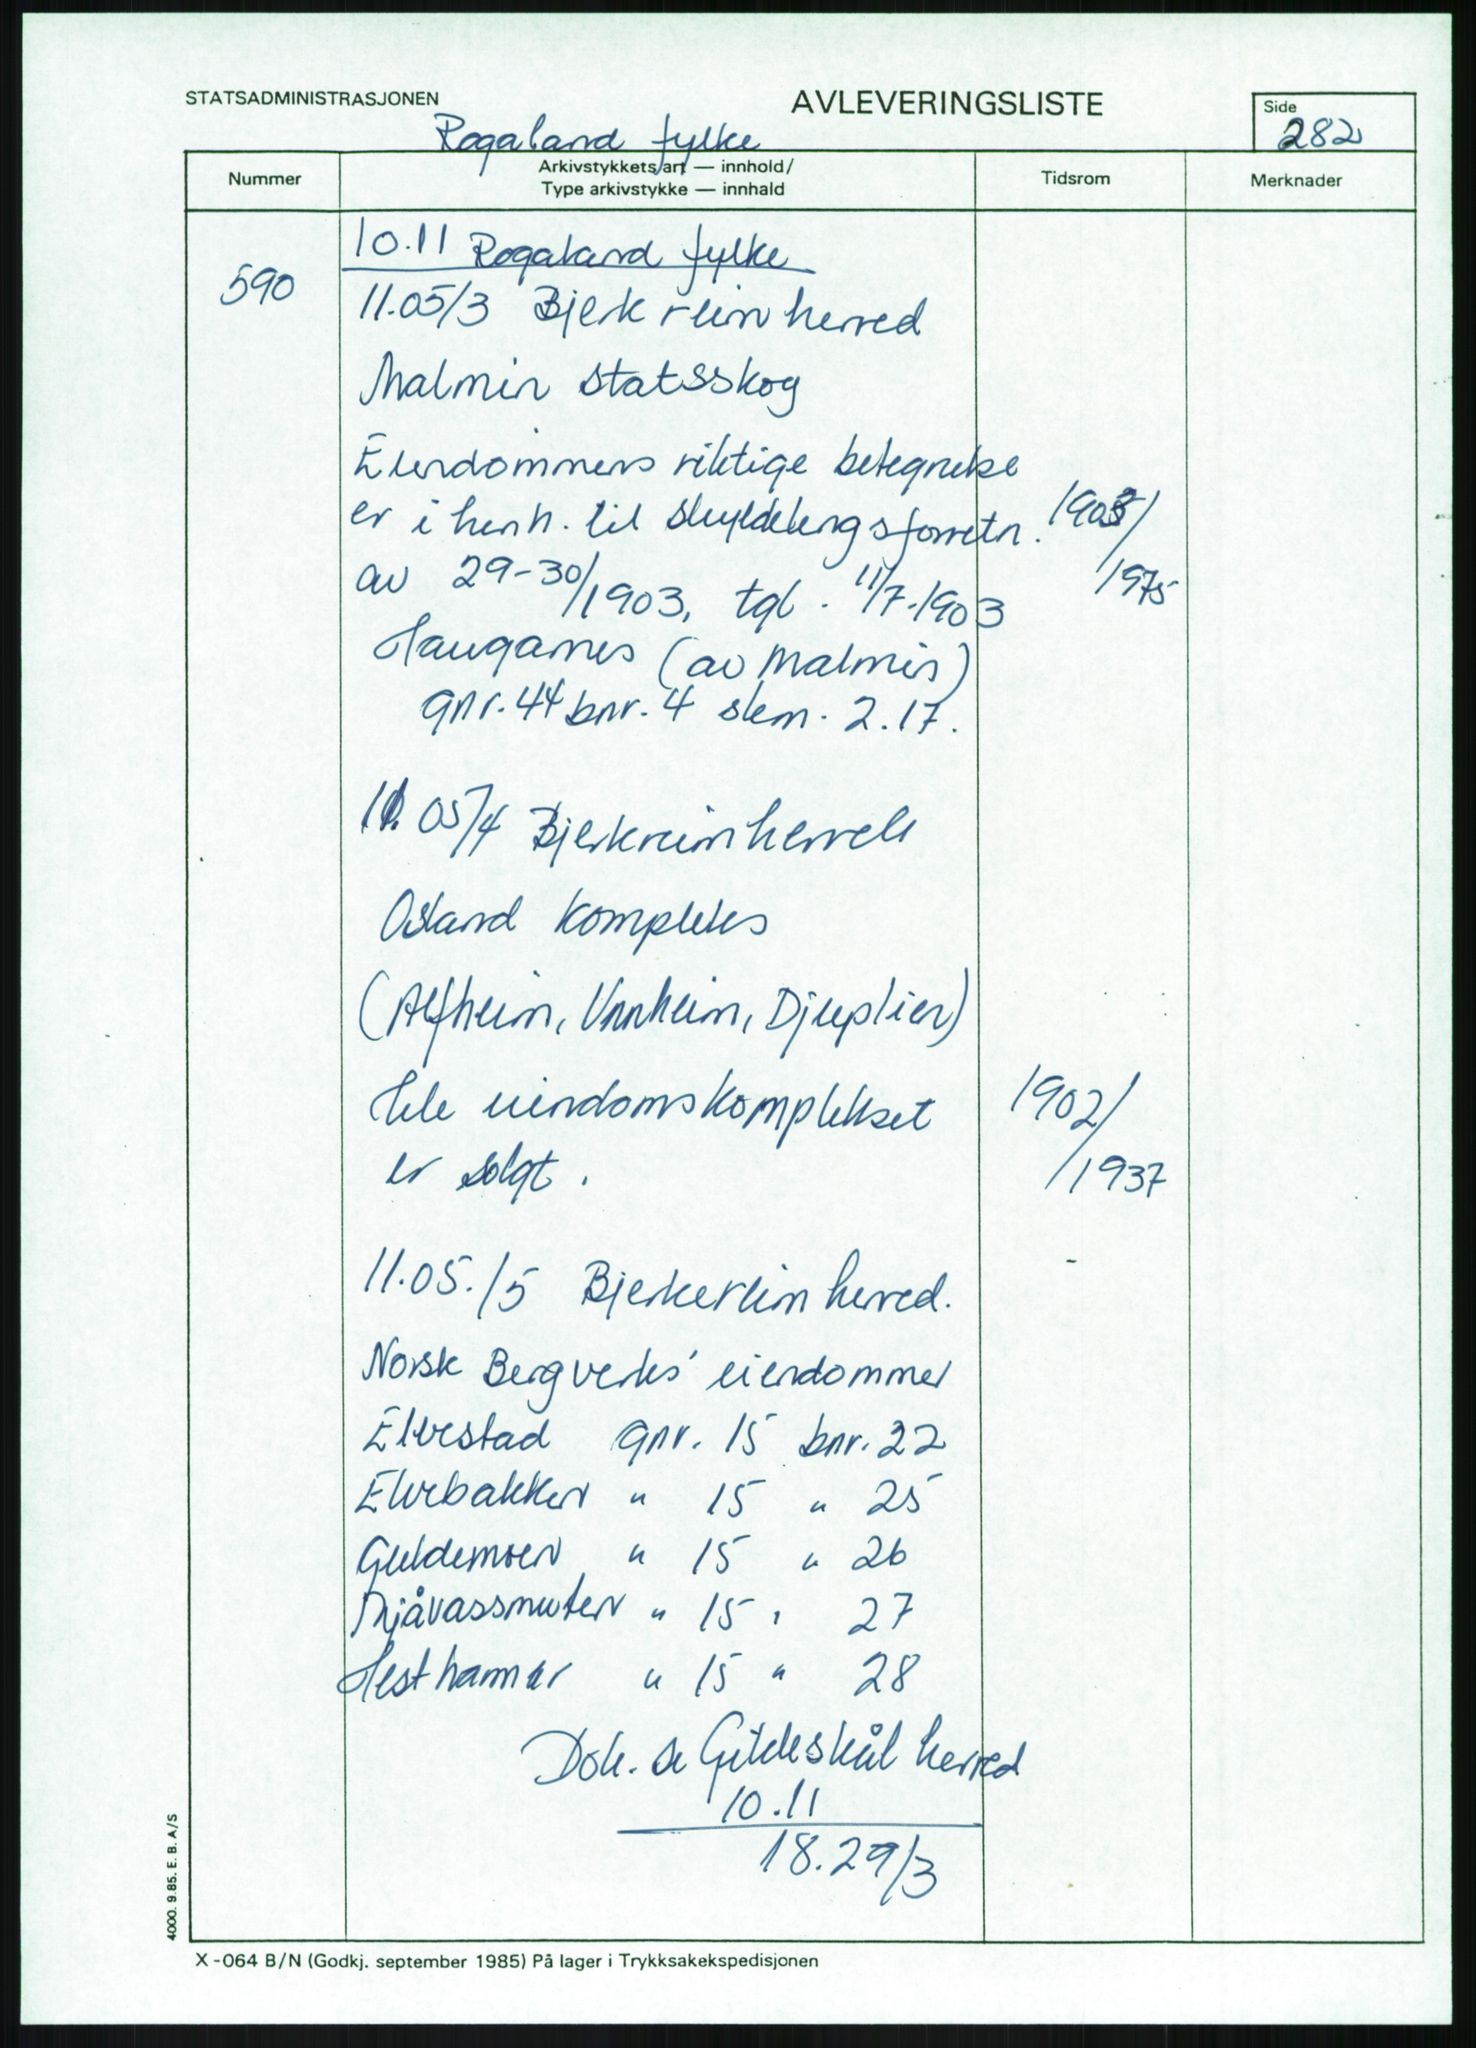 STATSADMINISTRASJONEN
AVLEVERINGSLISTE
Side
282
Rogaland fylke
Nummer
Arkivstykkets art — innhold/
Type arkivstykke — innhald
Tidsrom
Merknader
10.11 Rogaland fylke
590
11.05/3 Bjerkreim herred
Malmin statsskog
Eiendommens riktige betegnelse
er i henh. til skyldelingsforretn. 1903/
av 29-30/1903, tgl. 11/7-1903 /1975
Haugarnes (av Malmin)
gnr. 44 bnr. 4 skm. 2.17.
11.05/4 Bjerkreim herred
Osland kompleks
(Alfheim, Unnheim, Djuplien)
Hele eiendomskomplekset 1902/
er solgt. /1937
11.05./5 Bjerkereim herred.
Norsk Bergverks' eiendommer
Elvestad gnr. 15 bnr. 22
Elvebakken " 15 " 25
Guldemoen " 15 " 26
15 " 27
Hesthammer " 15 " 28
Dok. se Gildeskål herred
10.11
18.29/3
4000. 9.85. E. B. A/S
X-064 B/N (Godkj. september 1985) På lager i Trykksakekspedisjonen